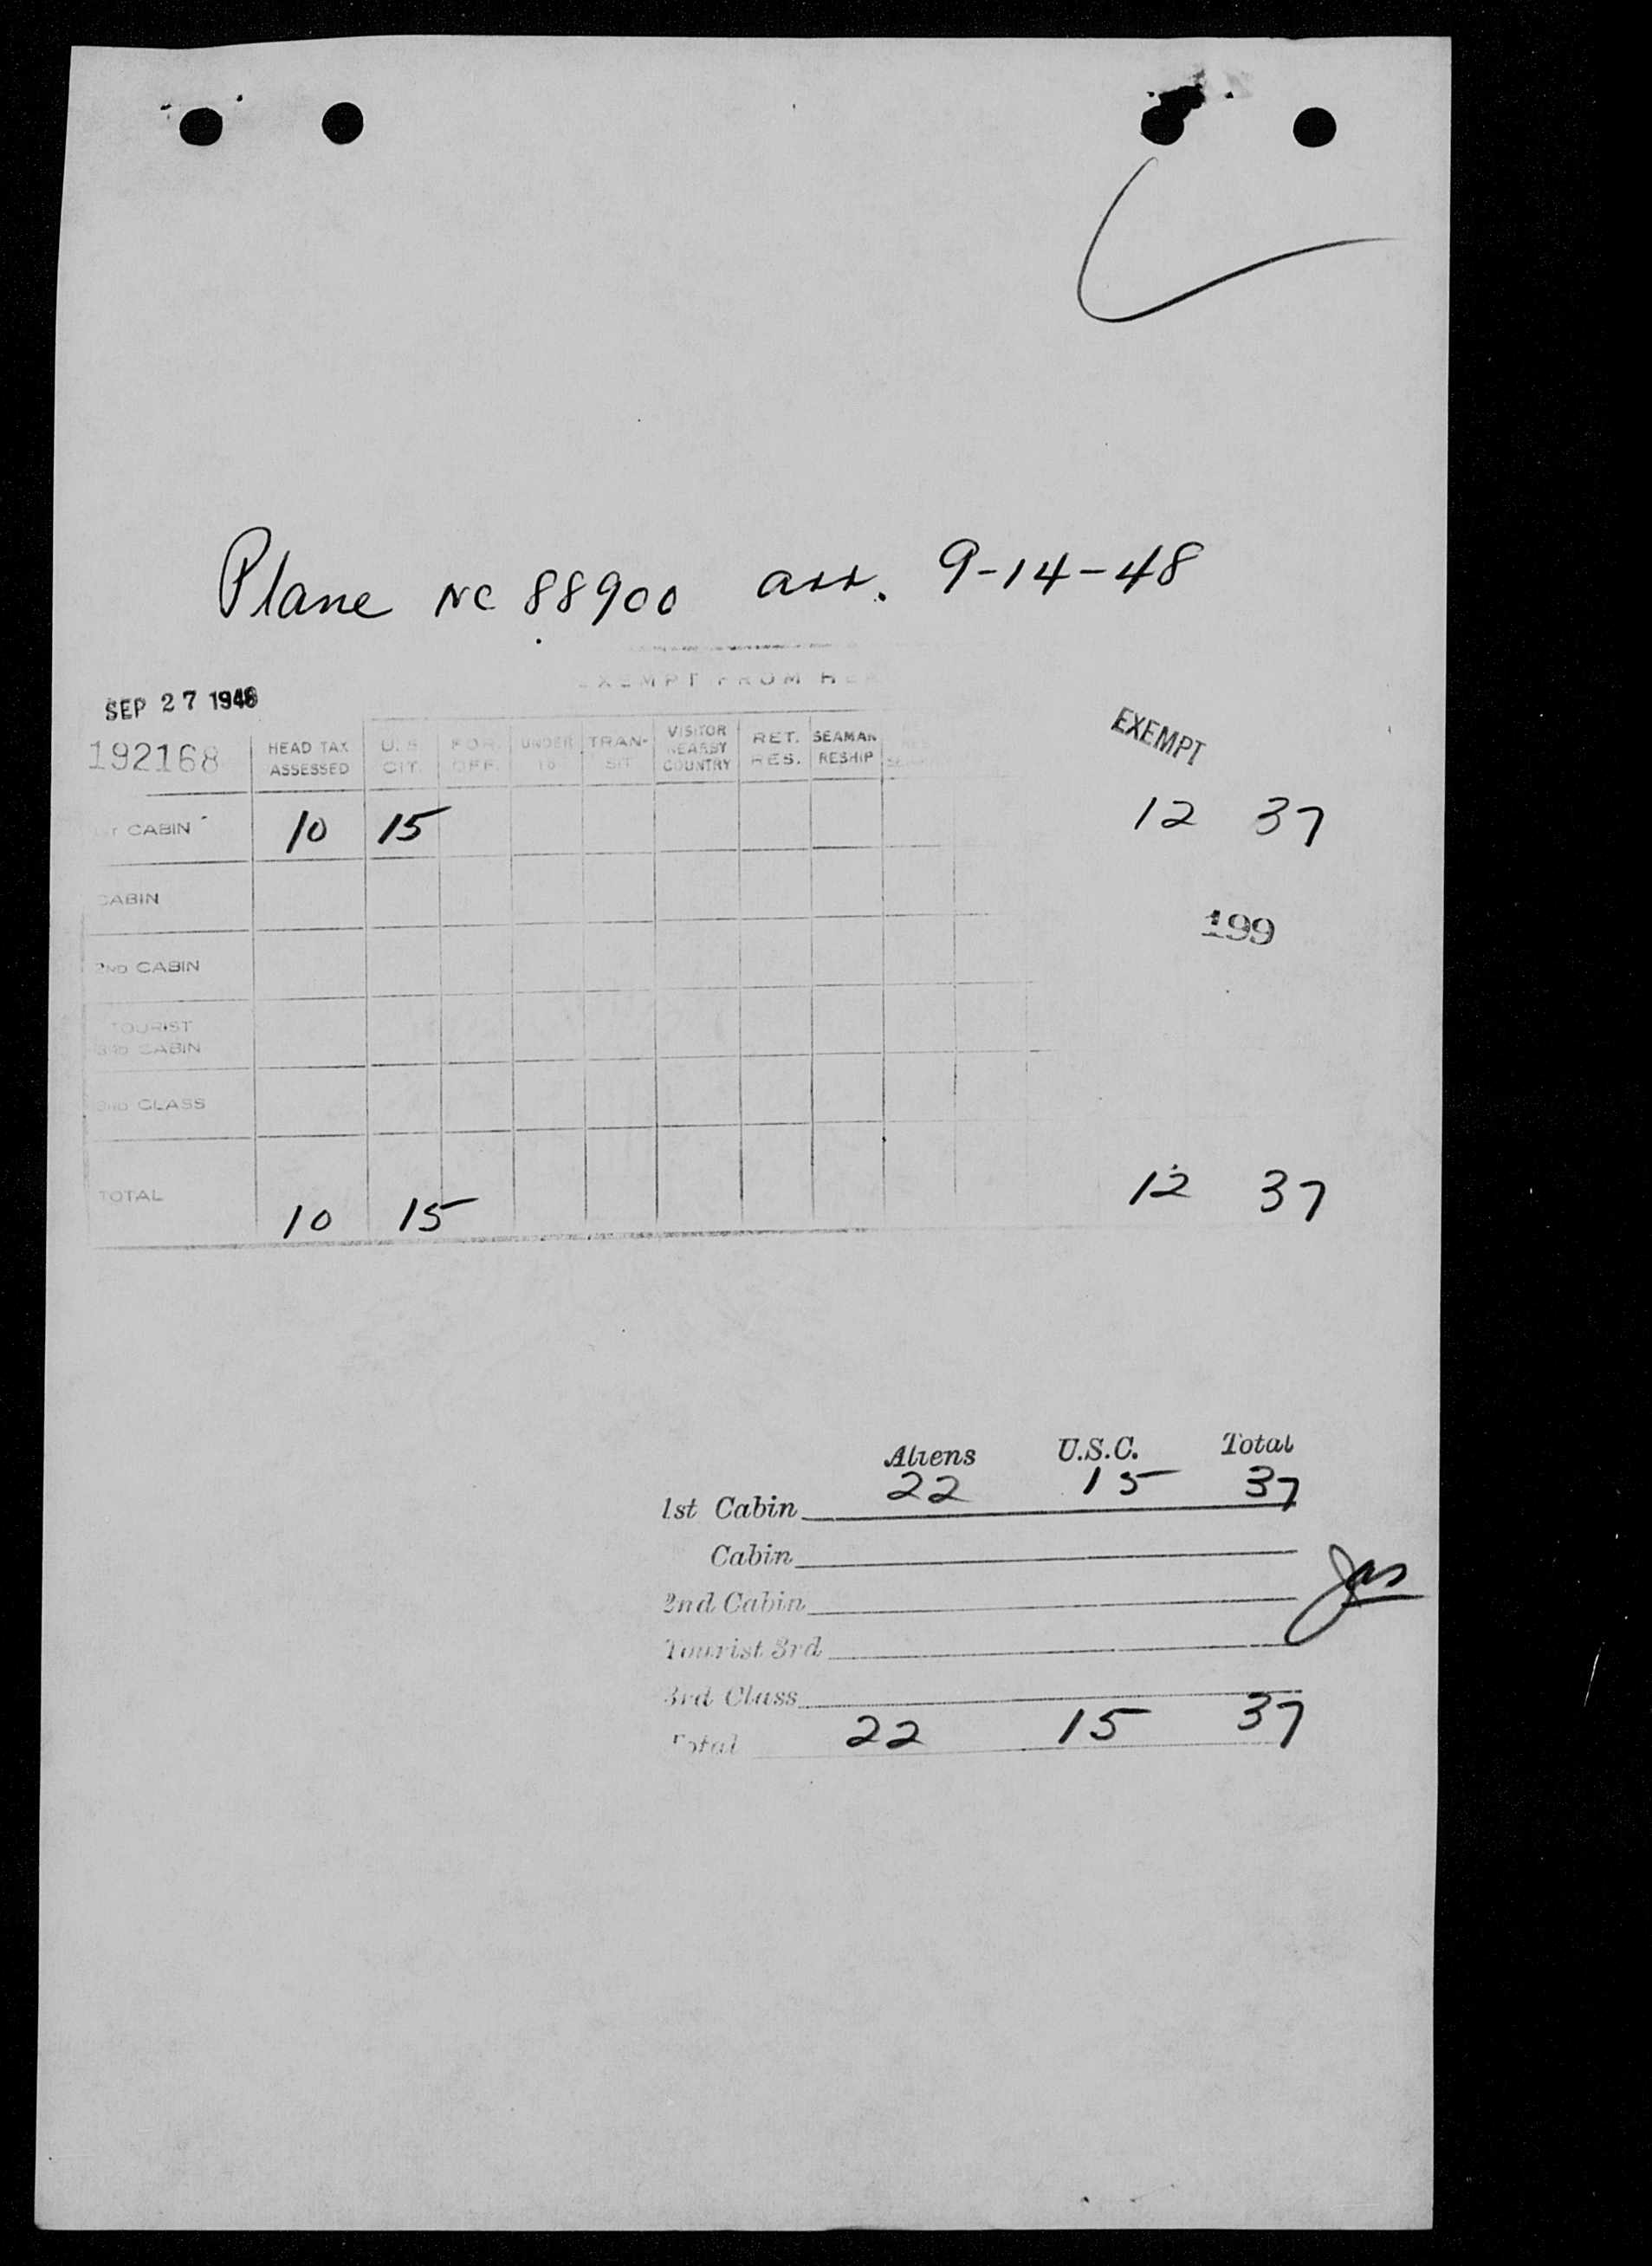 Plane NC 88900 arr. 9-14-48
EXEMPT FROM
SEP 27 1948
192168
HEAD TAX ASSESSED U.S. CIT. FOR. OFF. UNDER 16 TRAN-SIT VISITOR NEARBY COUNTRY RET. RES. SEAMAN RESHIP EXEMPT
CABIN 10 15 12 37
CABIN
199
2ND CABIN
TOURIST
3RD CABIN
3RD CLASS
TOTAL 10 15 12 37
Aliens U.S.C. Total
1st Cabin 22 15 37
Cabin
2nd Cabin
Tourist 3rd
3rd Class
Total 22 15 37